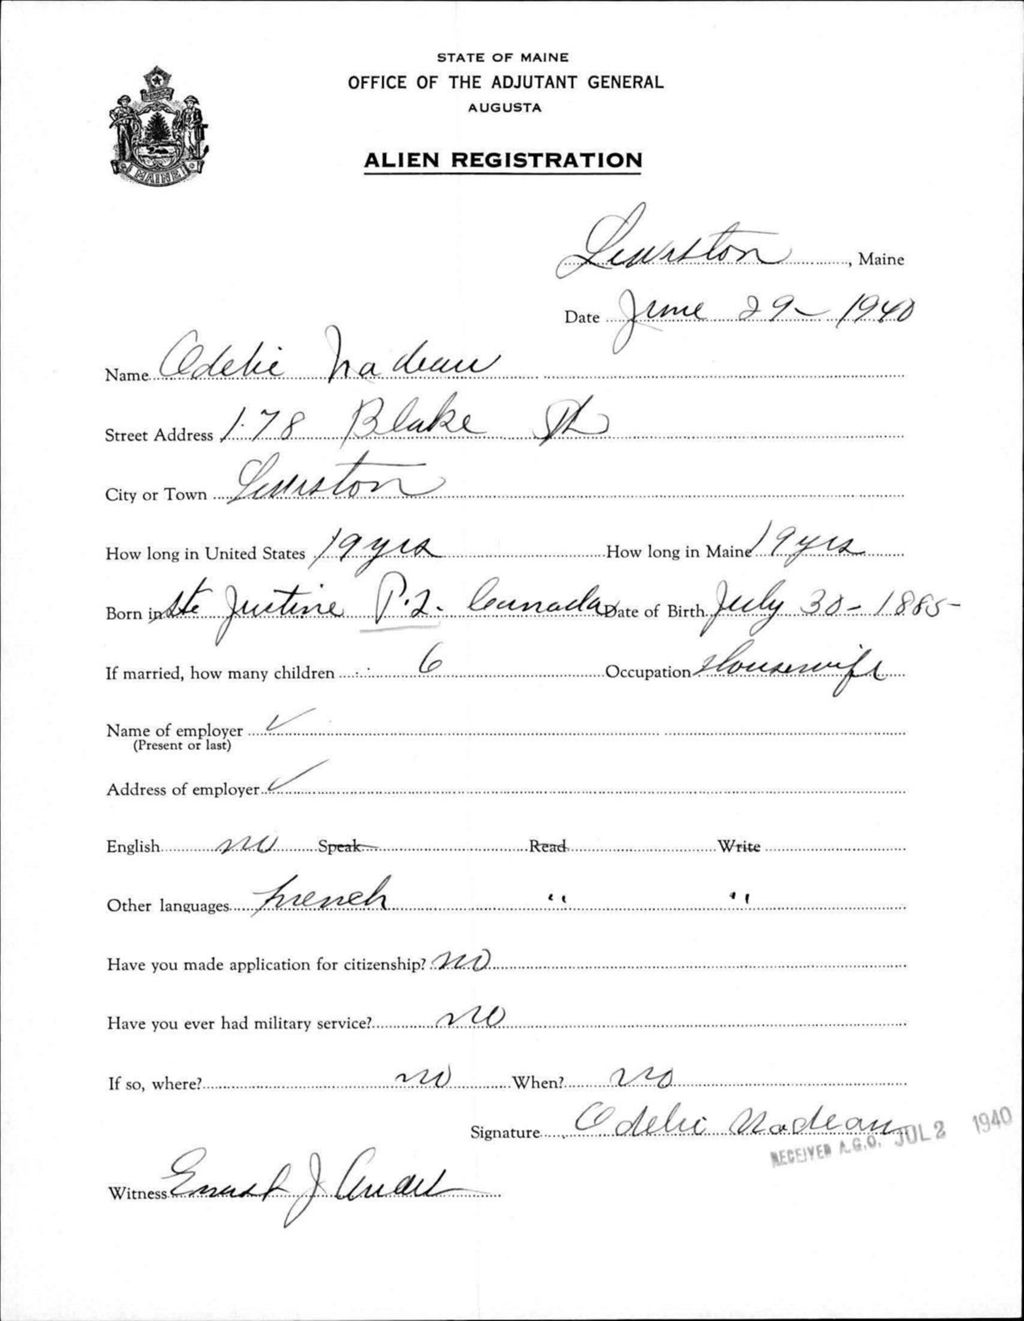 STATE OF MAINE
OFFICE OF THE ADJUTANT GENERAL
AUGUSTA
MAINE
ALIEN REGISTRATION
Lewiston, Maine
Date June 29 - 1940
Name Odelie Nadeau
Street Address 178 Blake St
City or Town Lewiston
How long in United States 19 yrs How long in Maine 19 yrs
Born in Ste Justine P.Q. Canada Date of Birth July 30 - 1885
If married, how many children 6 Occupation Housewife
Name of employer ✓
(Present or last)
Address of employer ✓
English no Speak Read Write
Other languages French " "
Have you made application for citizenship? no
Have you ever had military service? no
If so, where? no When? no
Signature Odelie Nadeau
RECEIVED A.G.O. JUL 2 1940
Witness Ernest J